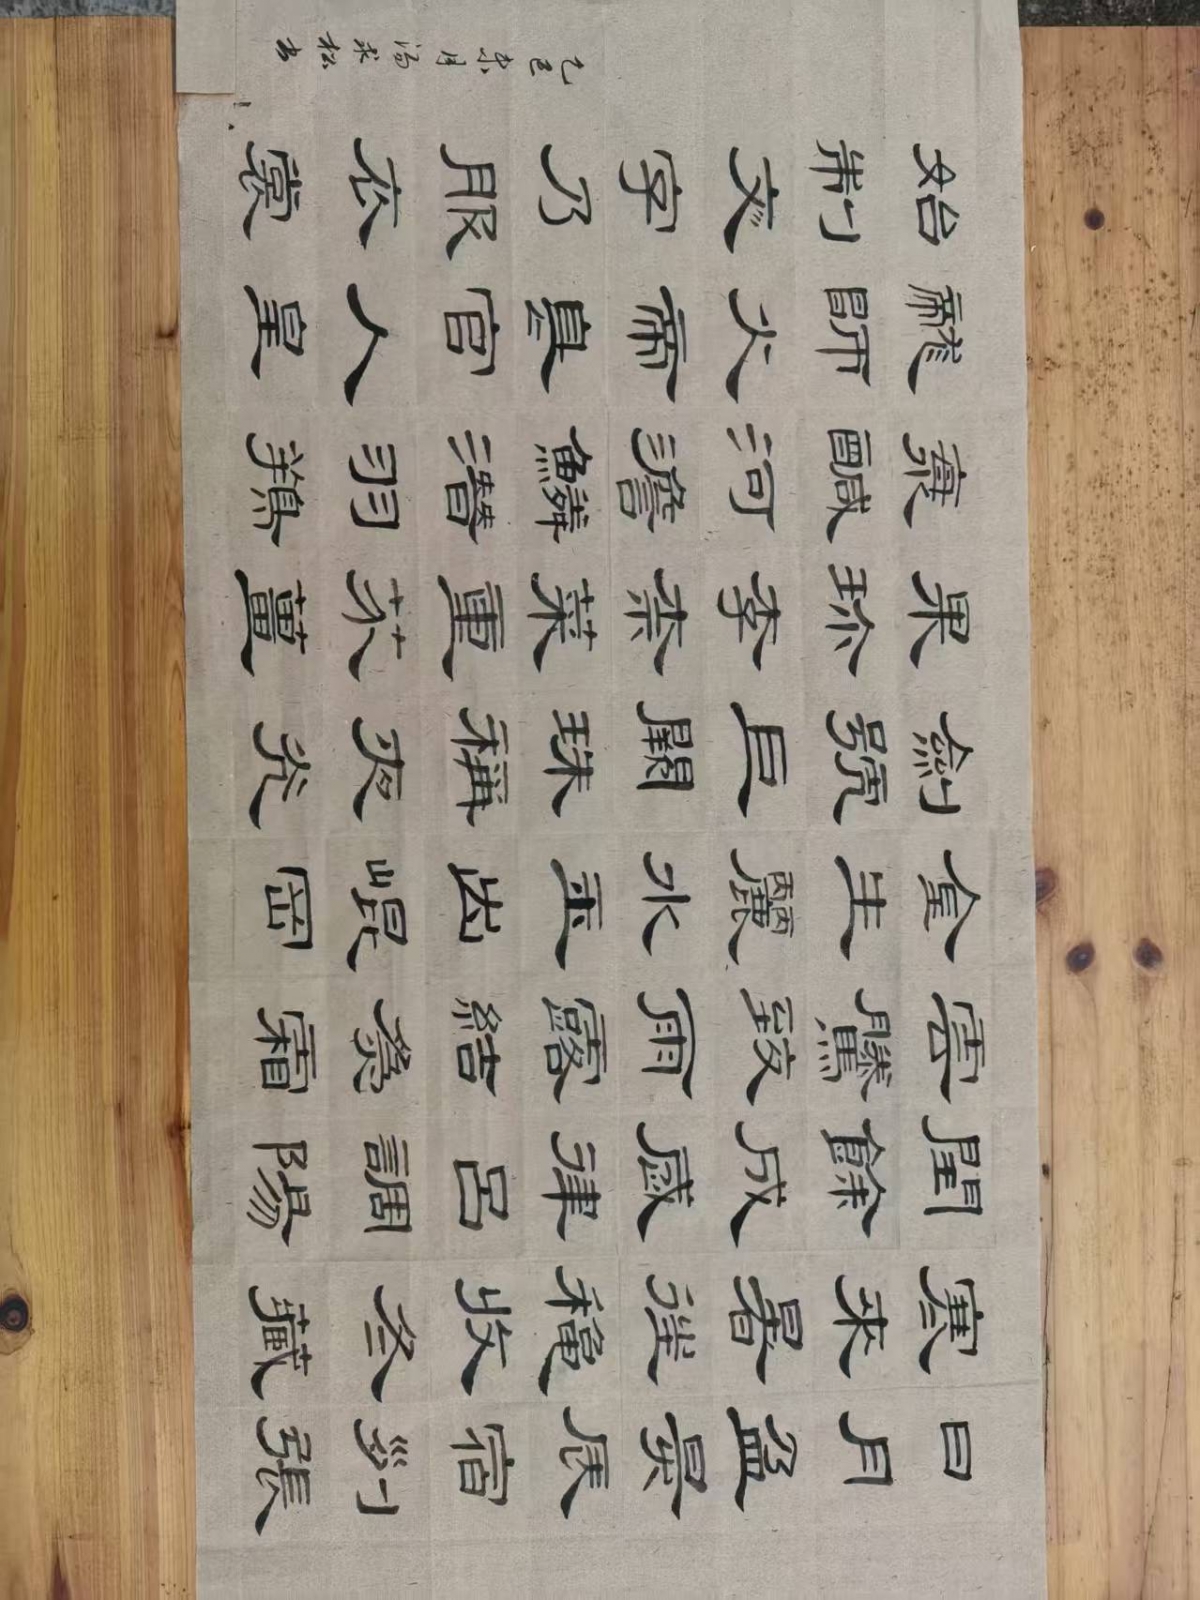 日月盈昃辰宿列張
寒來暑往穐收冬藏
閏餘成歲律呂調陽
雲騰致雨露結為霜
金生麗水玉出崐岡
劍號巨闕珠稱夜光
果珍李柰菜重芥薑
海鹹河澹鱗潛羽翔
龍師火帝鳥官人皇
始制文字乃服衣裳
乙巳柒月求松书